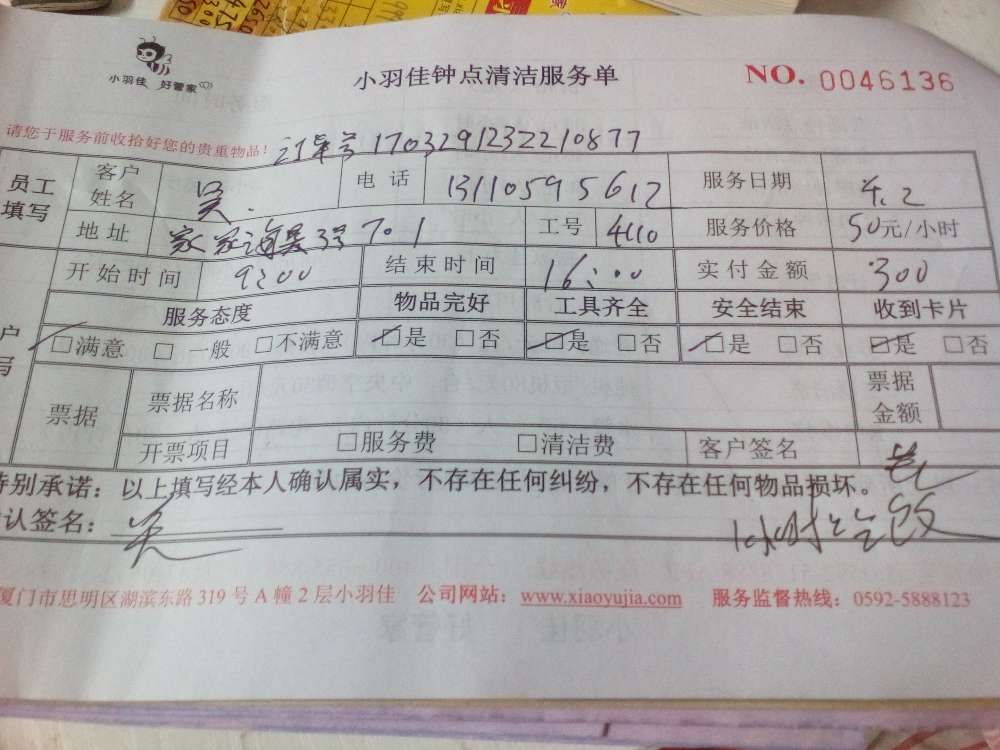 小羽佳 好管家
小羽佳钟点清洁服务单
NO. 0046136
请您于服务前收拾好您的贵重物品！
订单号 1703291232210877
员工填写 客户姓名 吴. 电话 13110595612 服务日期 4.2
地址 家家海景3号701 工号 4110 服务价格 50元/小时
开始时间 9:00 结束时间 16:00 实付金额 300
服务态度 物品完好 工具齐全 安全结束 收到卡片
□满意 □一般 □不满意 □是 □否 □是 □否 □是 □否 □是 □否
户
写
票据 票据名称 票据金额
开票项目 □服务费 □清洁费 客户签名
特别承诺：以上填写经本人确认属实，不存在任何纠纷，不存在任何物品损坏。
认签名： 吴
厦门市思明区湖滨东路319号A幢2层小羽佳 公司网站：www.xiaoyujia.com 服务监督热线：0592-5888123